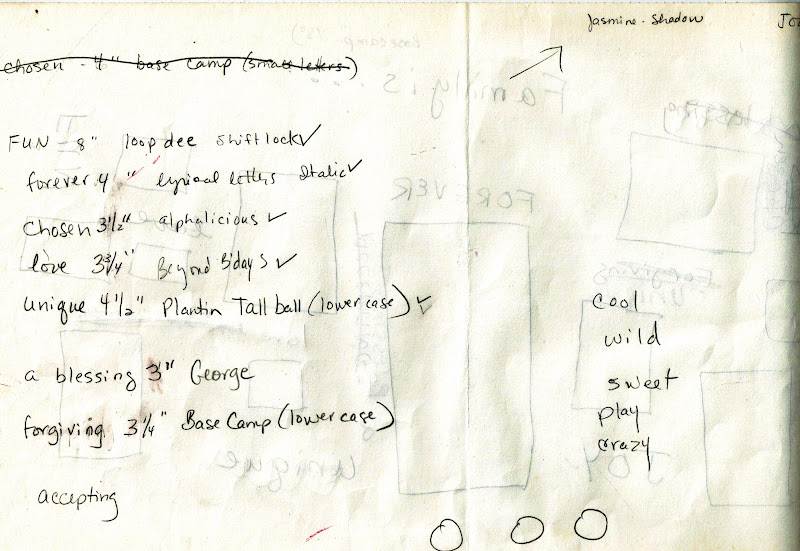 Jasmine - Shadow
chosen - 4" base camp (small letters)
FUN - 8" loop dee shift lock ✓
forever 4" Lyrical letters Italic ✓
Chosen 3½" alphalicious ✓
love 3¾" Beyond B'days ✓
unique 4½" Plantin Tall ball (lower case) ✓
a blessing 3" George
forgiving 3¼" Base Camp (lower case)
accepting
cool
wild
sweet
play
crazy
(basecamp
Family is...
FOREVER
Forgiving
unique
JOY